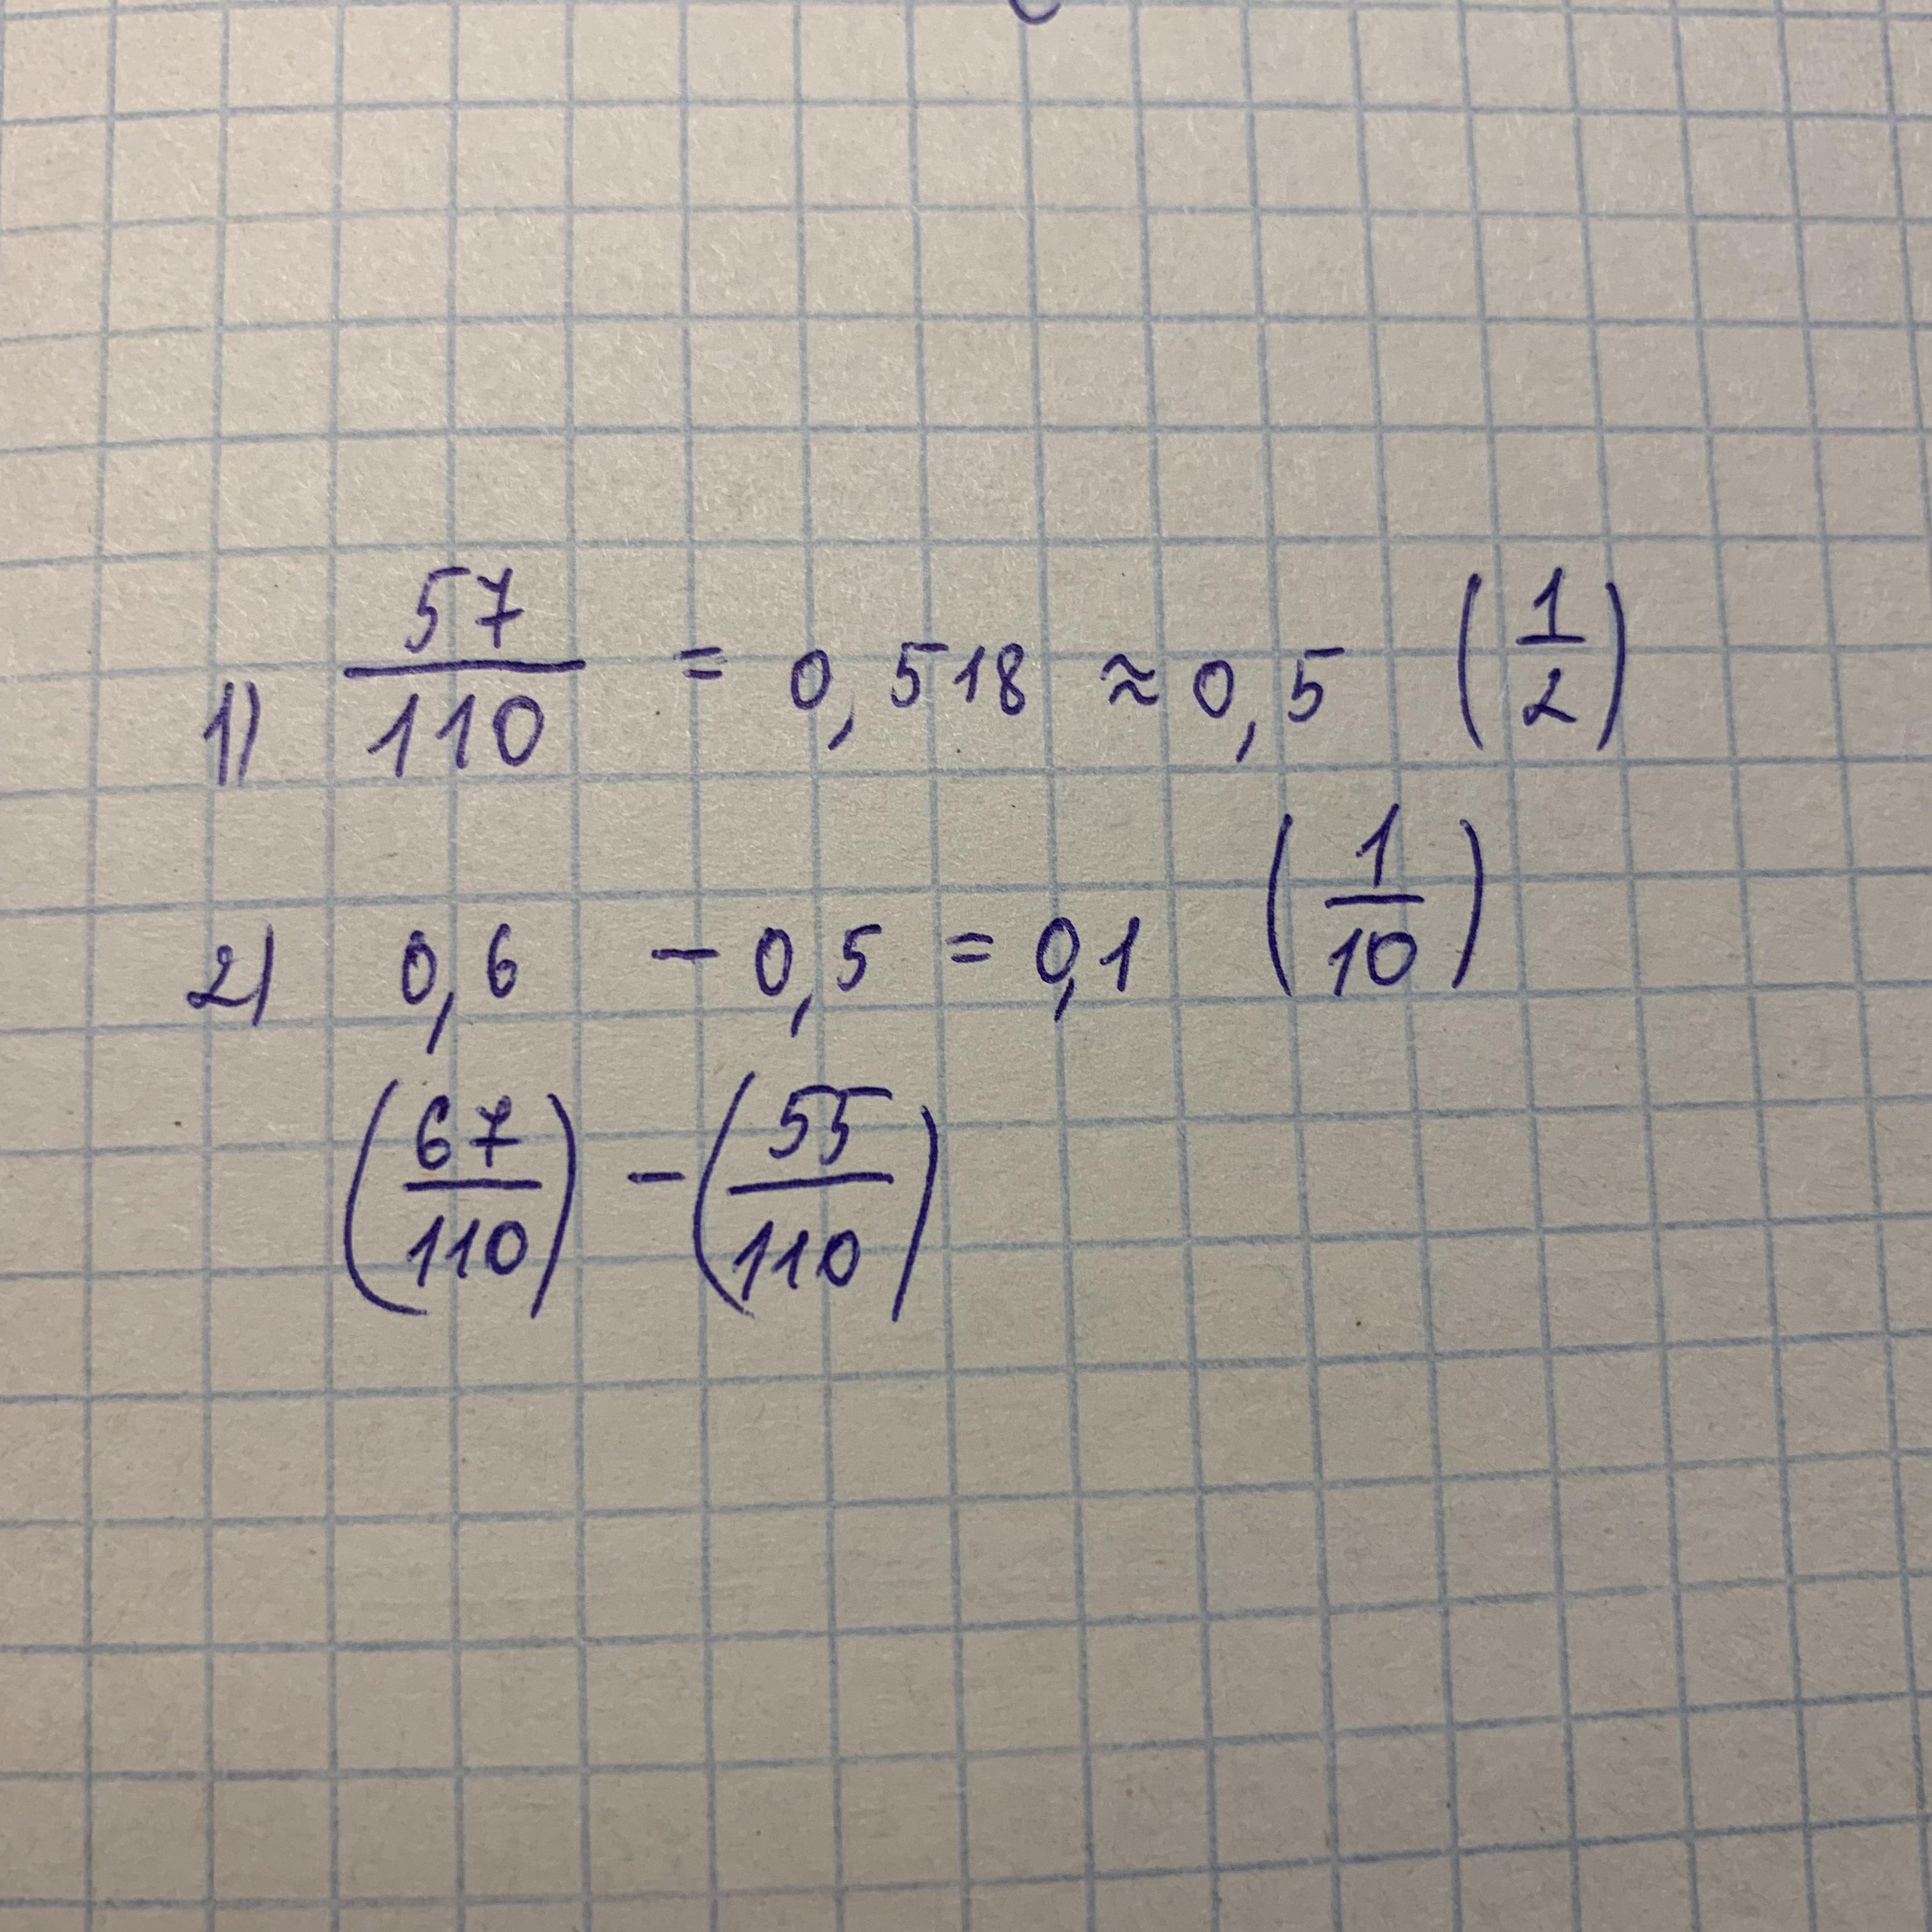 1) 57/110 = 0,518 ≈ 0,5 (1/2)
2) 0,6 - 0,5 = 0,1 (1/10)
(67/110) - (55/110)